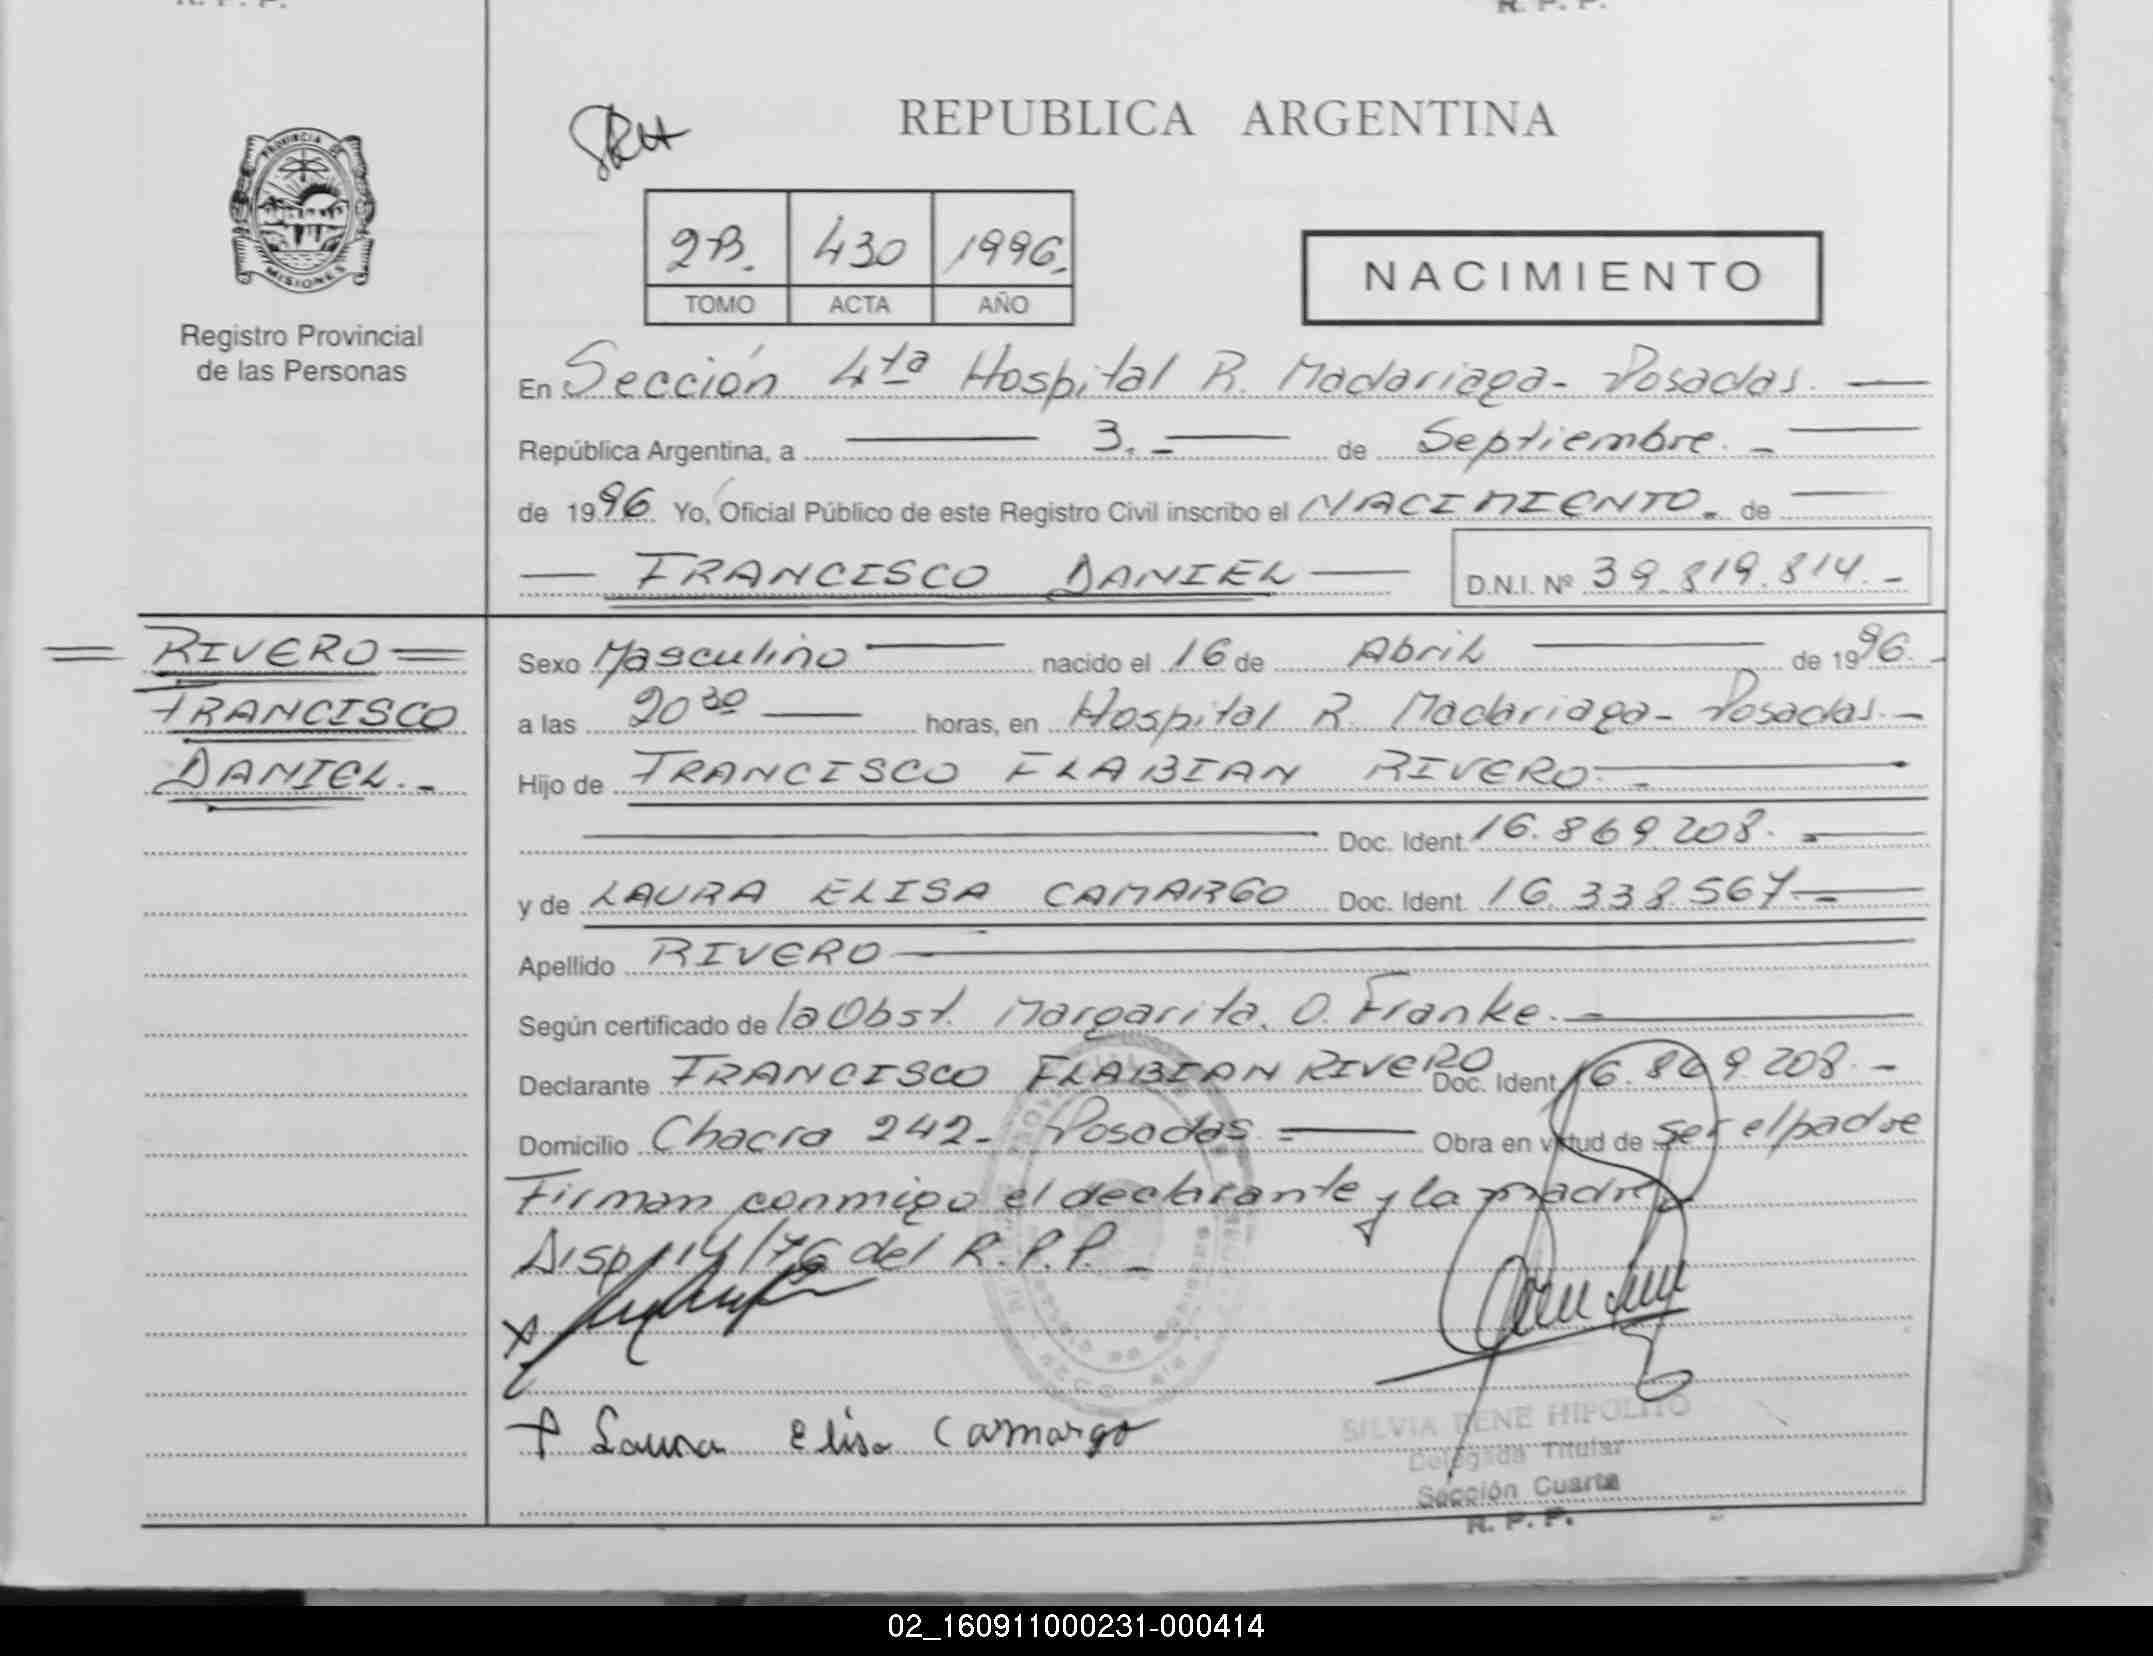 R. P. P.
R. P. P.
PROVINCIA DE
MISIONES
Registro Provincial
de las Personas
SRH
REPUBLICA ARGENTINA
2B. 430 1996.
TOMO ACTA AÑO
NACIMIENTO
En Sección 4ta Hospital R. Madariaga - Posadas. —
República Argentina, a — 3. — de Septiembre. —
de 1996 Yo, Oficial Público de este Registro Civil inscribo el NACIMIENTO. de —
— FRANCISCO DANIEL — D.N.I. Nº 39.819.814. -
= RIVERO =
FRANCISCO
DANIEL. -
Sexo Masculino — nacido el 16 de Abril — de 1996. -
a las 20 30 — horas, en Hospital R. Madariaga - Posadas. -
Hijo de FRANCISCO FLABIAN RIVERO. —
— Doc. Ident. 16.869.208. —
y de LAURA ELISA CAMARGO Doc. Ident. 16.338.567 —
Apellido RIVERO —
Según certificado de la Obst. Margarita. O. Franke. —
Declarante FRANCISCO FLABIAN RIVERO Doc. Ident. 16.869.208. -
Domicilio Chacra 242 - Posadas. — Obra en virtud de ser el padre
Firman conmigo el declarante y la madre
Disp. 114/76 del R.P.P. -
x
+ Laura Elisa Camargo
SILVIA RENE HIPOLITO
Delegada Titular
Sección Cuarta
R. P. P.
02_160911000231-000414